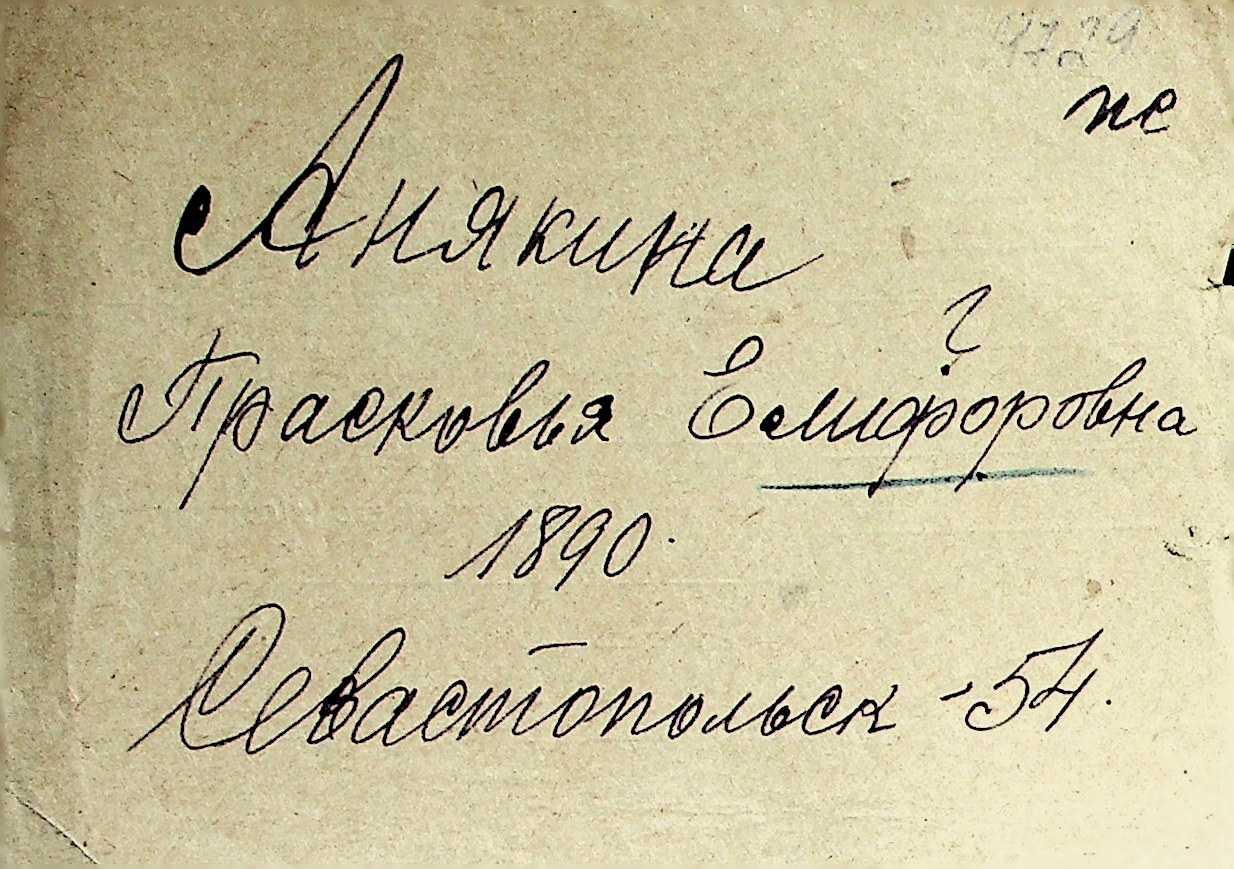 4729
пс
Анякина
?
Прасковья Елифоровна
1890.
Севастопольск - 54.